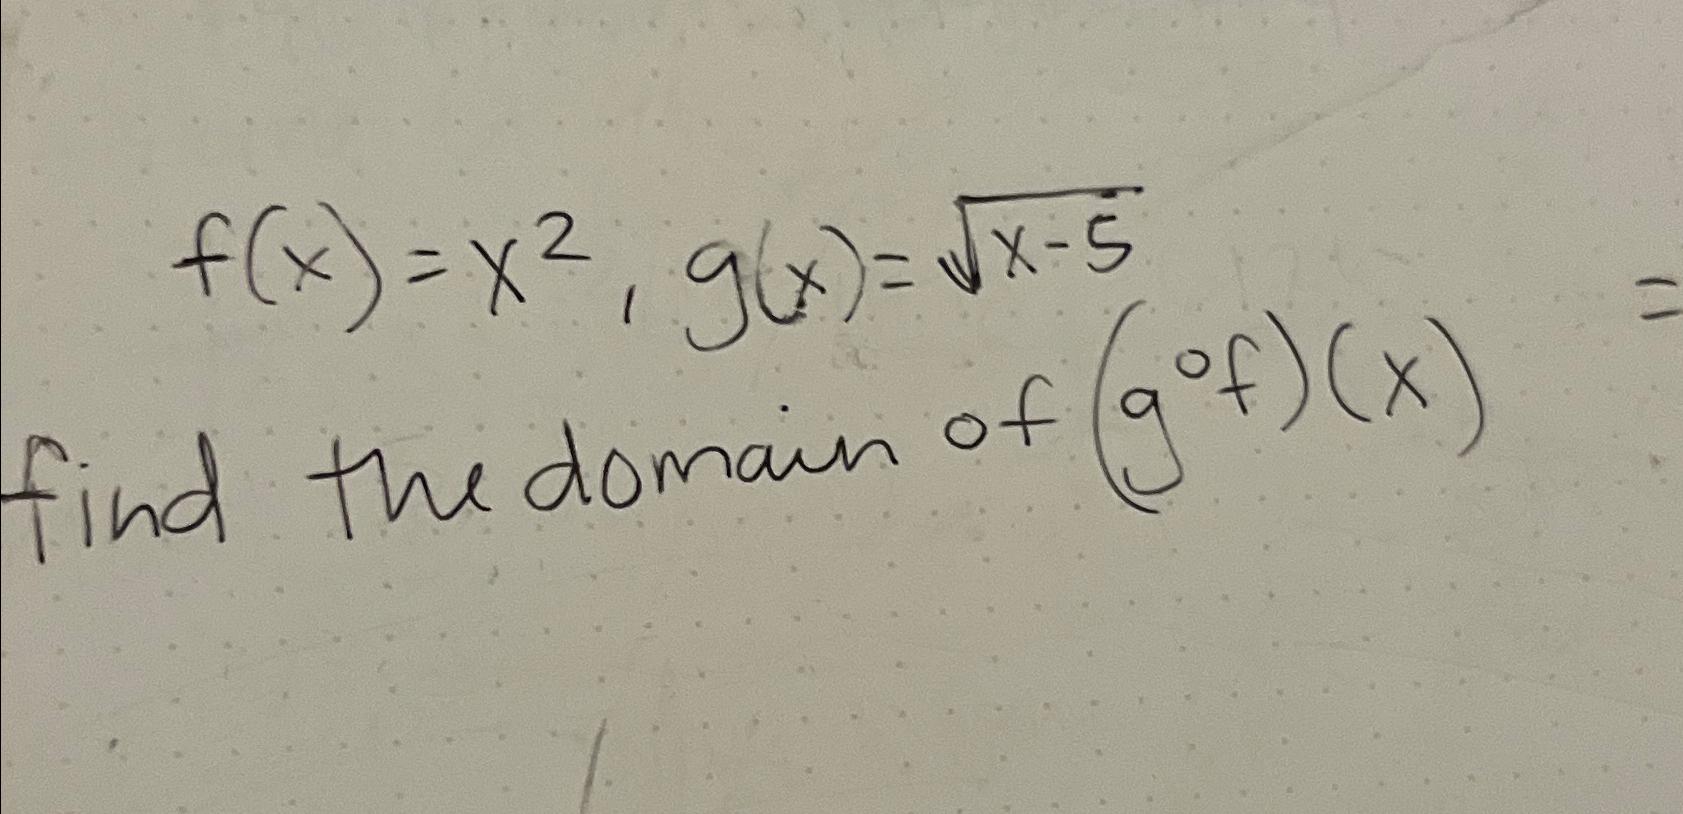 f(x) = x², g(x) = √(x-5)
=
find the domain of (g∘f)(x)